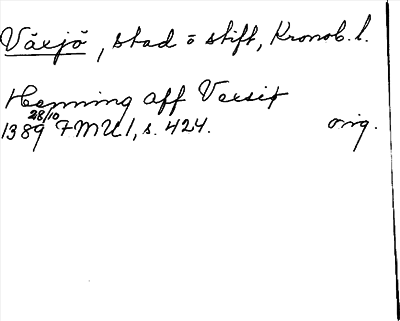 Växjö, stad o stift, Kronob. l.
Henning aff Vexsiø
28/10
1389 FMU 1, s. 424. orig.